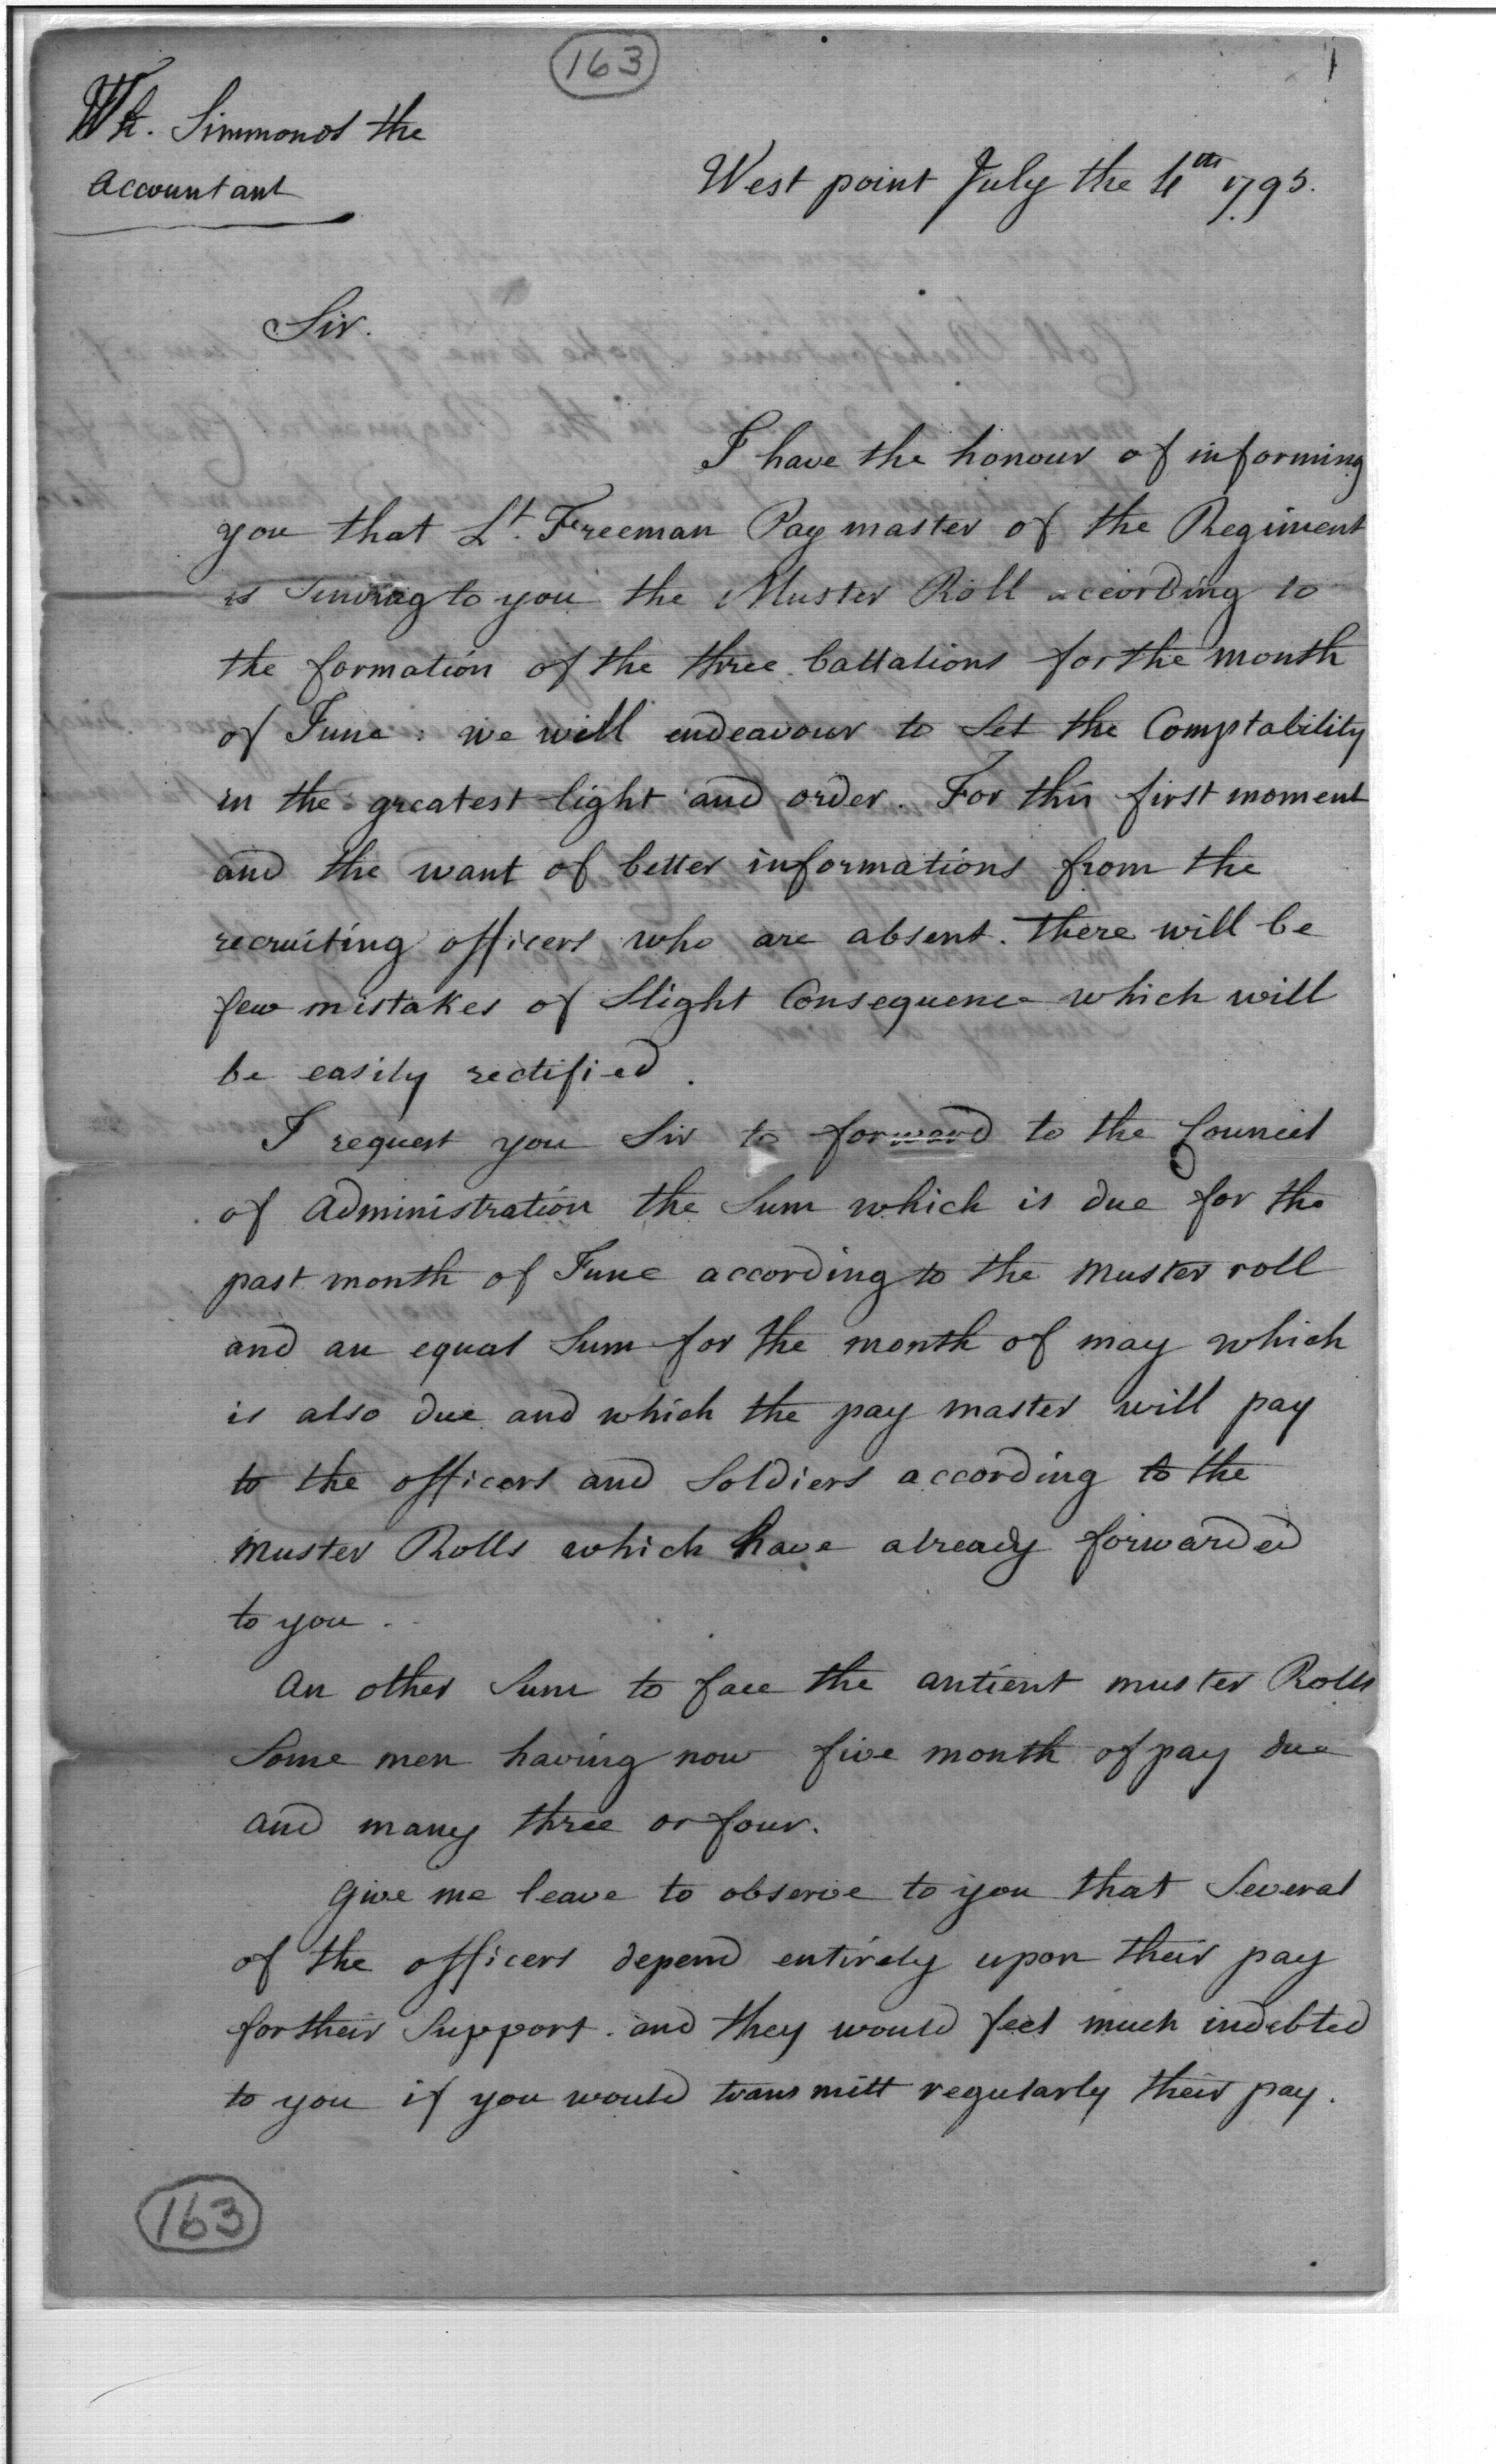 163
Wm. Simmons the
accountant
West point July the 4th 1795.
Sir.
I have the honour of informing
you that Lt. Freeman Pay master of the Regiment
is sending to you the Muster Roll according to
the formation of the three battalions for the month
of June : we will endeavour to Set the Comptability
in the greatest light and order. For this first moment
and the want of better informations from the
recruiting officers who are absent. there will be
few mistakes of Slight Consequence which will
be easily rectified.
I request you Sir to forward to the Council
of administration the Sum which is due for the
past month of June according to the muster roll
and an equal Sum for the month of may which
is also due and which the pay master will pay
to the officers and Soldiers according to the
muster Rolls which have already forwarded
to you.
an other Sum to face the antient muster Rolls
Some men having now five month of pay due
and many three or four.
give me leave to observe to you that Several
of the officers depend entirely upon their pay
for their Support. and they would feel much indebted
to you if you would transmitt regularly their pay.
163